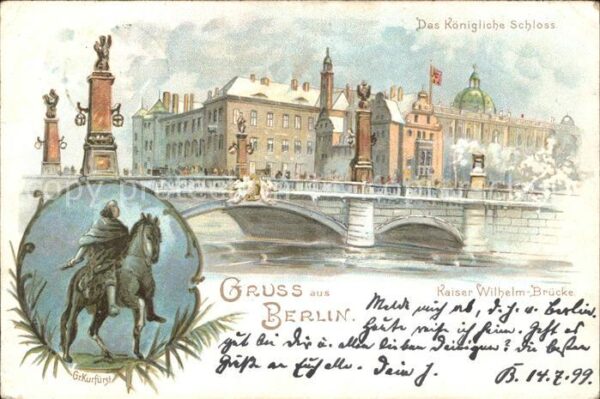 Das Königliche Schloss
Kaiser Wilhelm-Brücke
GRUSS aus
BERLIN.
Gr. Kurfürst
Melde mich ab, d. h. v. Berlin.
Heute reise ich heim. Geht es
gut bei Dir u. allen lieben Deinigen? Die besten
Grüße an Euch alle. Dein J.
B. 14.7.99.